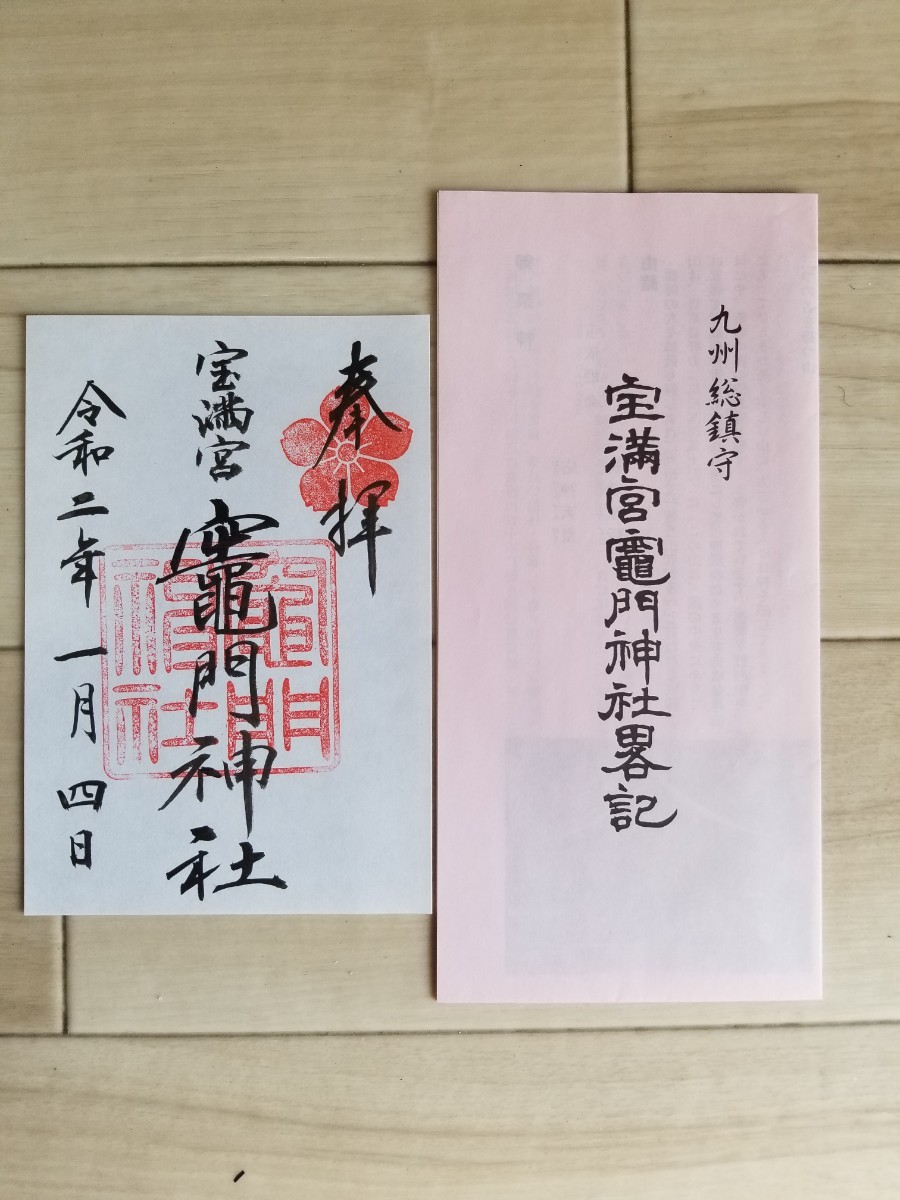 奉拝
宝満宮
竈門神社
令和二年一月四日
竈門
神社
九州総鎮守
宝満宮竈門神社畧記